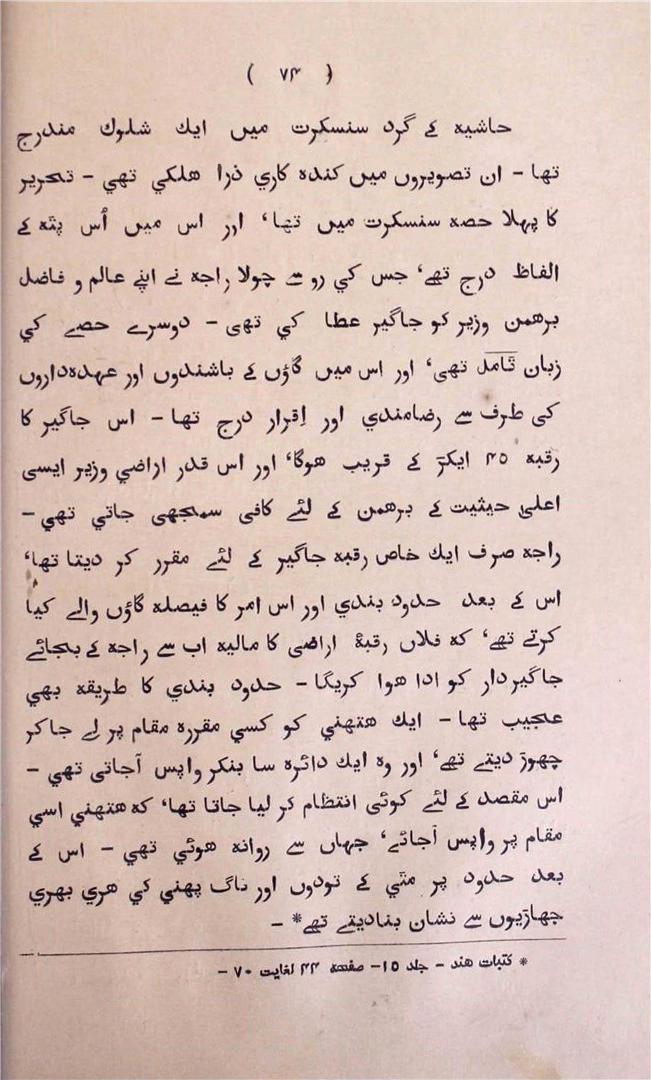 ( ۷۴ )
حاشیه کے گرد سنسکرت میں ایک شلوک مندرج
تها - ان تصویروں میں کنده کاري ذرا هلکي تهي - تحریر
کا پہلا حصه سنسکرت میں تها، اور اس میں اُس پٹه کے
الفاظ درج تهے، جس کي رو سے چولا راجه نے اپنے عالم و فاضل
برهمن وزیر کو جاگیر عطا کي تهی - دوسرے حصے کي
زبان ٹامل تهی، اور اس میں گاؤں کے باشندوں اور عہده‌داروں
کی طرف سے رضامندي اور اِقرار درج تها - اس جاگیر کا
رقبه ۴۵ ایکڑ کے قریب هوگا، اور اس قدر اراضي وزیر ایسی
اعلیٰ حیثیت کے برهمن کے لئے کافی سمجهی جاتي تهي -
راجه صرف ایک خاص رقبه جاگیر کے لئے مقرر کر دیتا تها،
اس کے بعد حدود بندي اور اس امر کا فیصله گاؤں والے کیا
کرتے تهے، که فلاں رقبۂ اراضی کا مالیه اب سے راجه کے بجائے
جاگیردار کو ادا هوا کریگا - حدود بندي کا طریقه بهی
عجیب تها - ایک هتهني کو کسي مقرره مقام پر لے جاکر
چهوڑ دیتے تهے، اور وه ایک دائره سا بنکر واپس آجاتی تهي -
اس مقصد کے لئے کوئی انتظام کر لیا جاتا تها، که هتهني اسي
مقام پر واپس آجائے، جہاں سے روانه هوئي تهي - اس کے
بعد حدود پر مٹي کے تودوں اور ناگ پهني کی هري بهري
جهاڑیوں سے نشان بنادیتے تهے* -
* کتبات هند - جلد ۱۵ - صفحه ۴۴ لغایت ۷۰ -